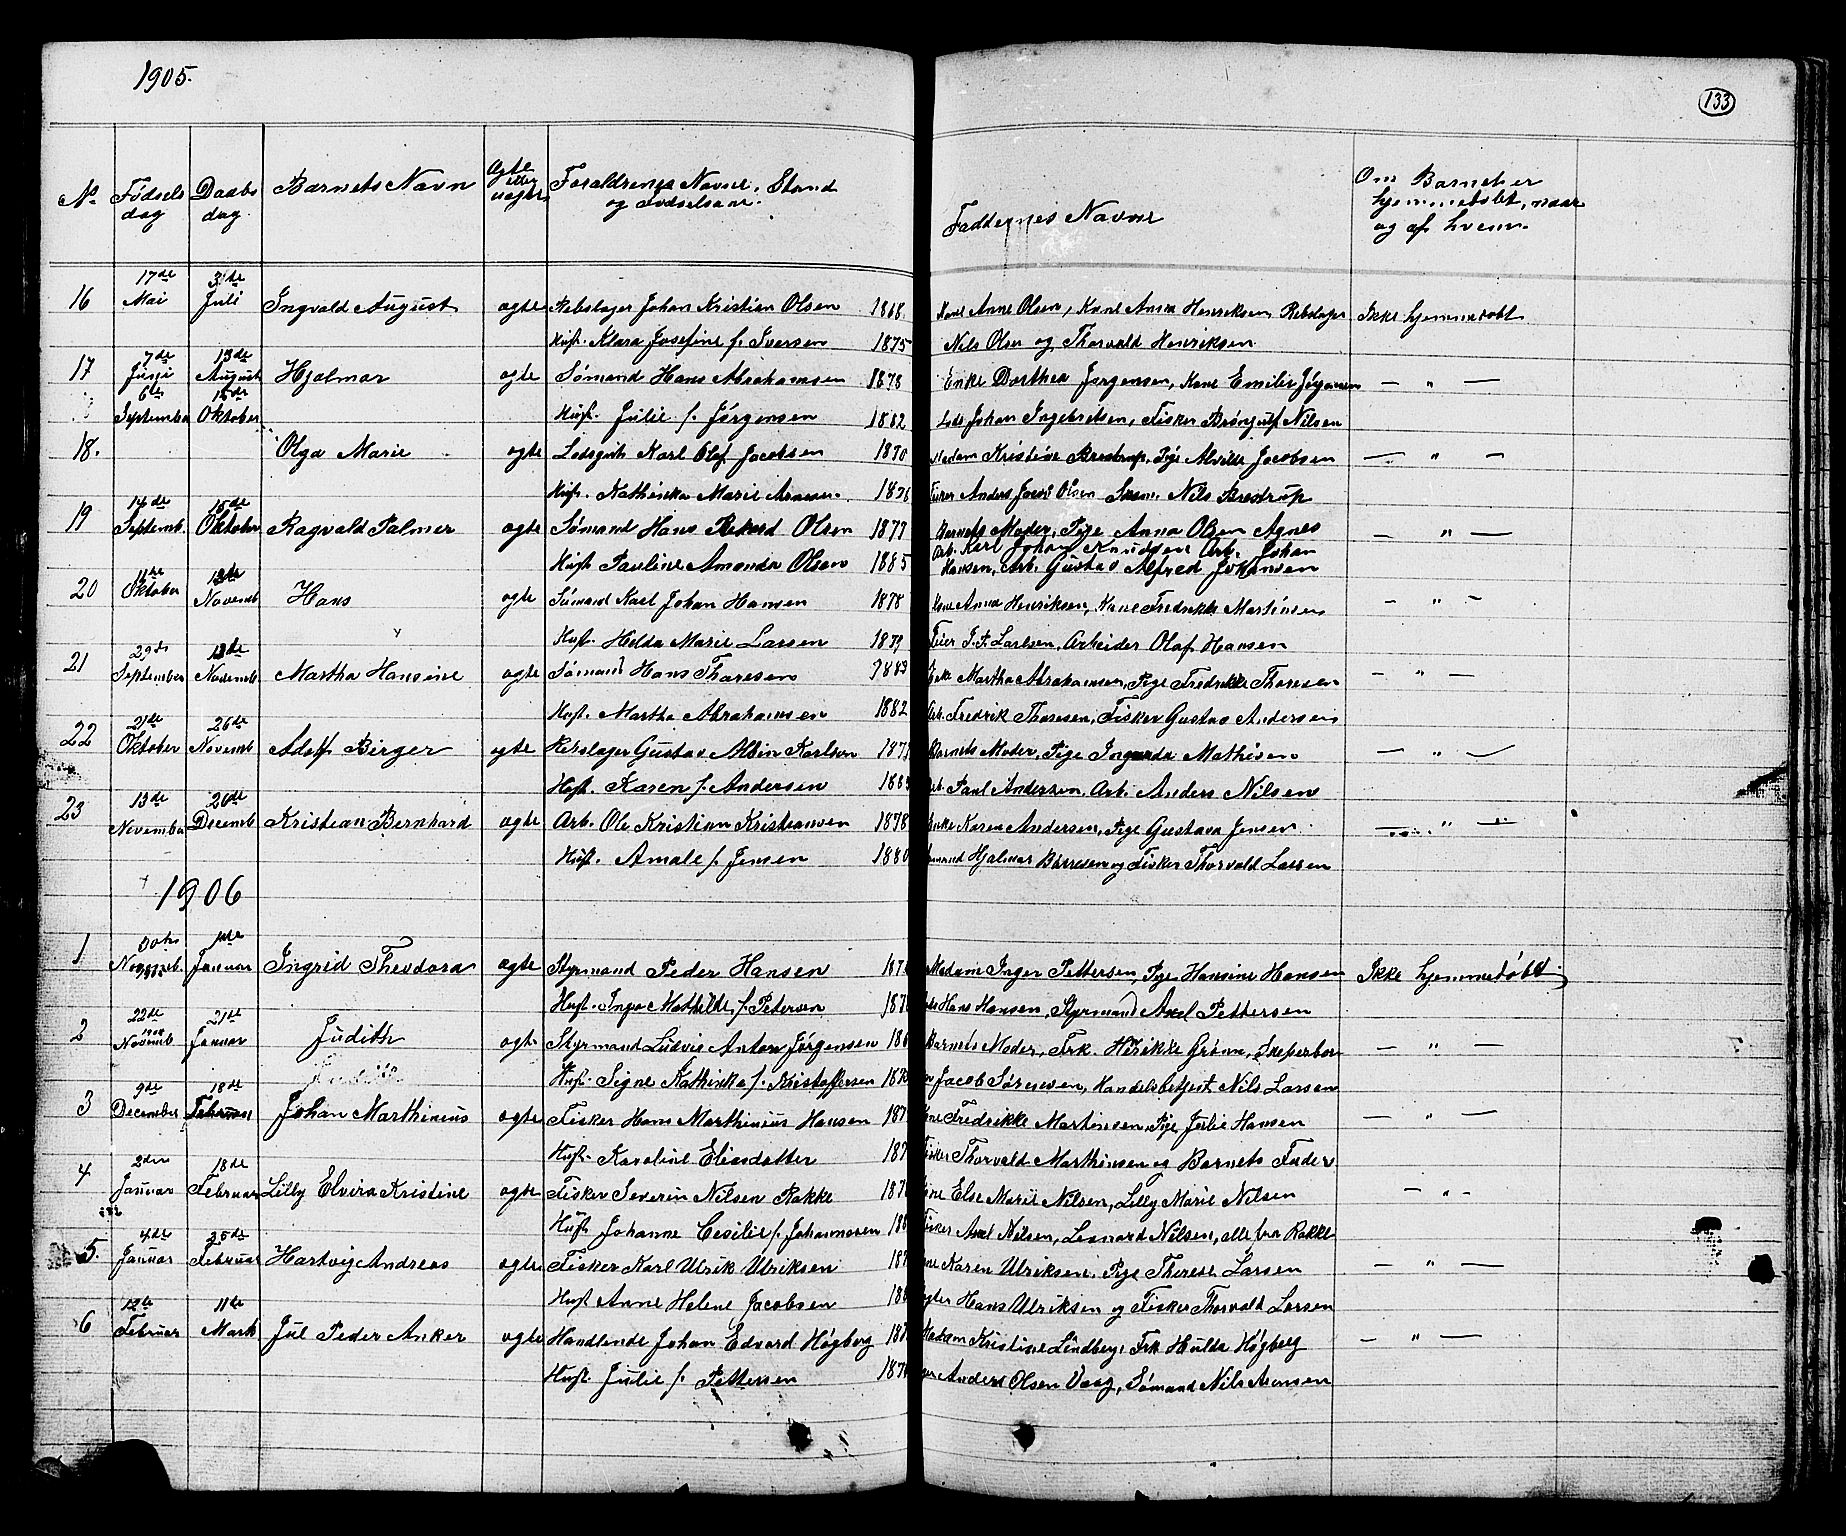 1905.
133
No Fødsels dag Daabs dag Barnets Navn Ægte eller uægte Forældrenes Navne, Stand og Fødselsaar. Faddernes Navne Om Barnet er hjemmedøbt, naar og af hvem.
16 17de Mai 3de Juli Ingvald August ægte Rebslager Johan Kristian Olsen 1868. Kone Anne Olsen, Kone Anna Henriksen Rebslager Ikke hjemmedøbt
Hust. Klara Josefine f. Iversen 1875 Nils Olsen og Thorvald Henriksen
17 7de Juni 13de August Hjalmar ægte Sømand Hans Abrahamsen 1878 Enke Dorthea Jørgensen, Kone Emilie Jørgensen — " —
6te September 15de Oktober Hust. Julie f. Jørgensen 1882 Lods Johan Ingebretsen, Fisker Brønjulf Nilsen
18. Olga Marie ægte Lodsgut Karl Olaf Jacobsen 1870 Madam Kristine Brestrup, Pige Alvilde Jacobsen — " —
Hust. Kathinka Marie Arnesen. 1876 Anders Olsen Nils Brestrup
19 14de Septemb. 15de Oktober Ragvald Palmer ægte Sømand Hans Rikard Olsen 1877 Barnets Moder, Pige Anna Olsen Agnes — " —
Arb. Karl Johan Knudsen Arb. Johan
Hust Pauline Amanda Olsen 1885 Hansen, Arb. Gustav Alfred Johansen
20 Oktober 12de Novemb Hans ægte Sømand Karl Johan Hansen 1878 Kone Anna Henriksen, Kone Fredrikke Martinsen — " —
Hust. Helda Marie Larsen 1879 Feier J. F. Carlsen, Arbeider Olaf Hansen
21 29de September 12de Novemb. Martha Hansine ægte Sømand Hans Thoresen 1883 Enke Martha Abrahamsen, Pige Fredrikke Thoresen — " —
Hust. Martha Abrahamsen 1882 Arb. Fredrik Thoresen, Fisker Gustav Andersen
22 21de Oktober 26de Novemb Adolf Birger ægte Rebslager Gustav Albin Karlson Barnets Moder, Pige Ingarda Mathisen — " —
Hust. Karen f. Andersen Arb. Paul Andersen, Arb. Anders Nilsen
23 13de Novembe 26de Decemb Kristian Bernhard ægte Arb. Ole Kristian Kristiansen 1878 Enke Karen Andersen, Pige Gustava Jensen — " —
Hust. Amalie f. Jensen 1880 Sømand Hjalmar Børresen og Fisker Thorvald Larsen
1906
1 Novemb. Januar Ingrid Theodora ægte Styrmand Peder Hansen Madame Inger Pettersen, Pige Hansine Hansen Ikke hjemmedøbt
Hust. Inga Mathilde f. Petersen Hans Hansen, Styrmand Axel Pettersen
2 22de Novemb 21de Januar Judith ægte Styrmand Ludvig Anton Jørgensen Barnets Moder, Frk. Henrikke Grønn, — " —
Hust. Signe Kathinka f. Kristoffersen Jacob Sørensen, Handelsbetjent Nils Larsen
3 9de December 18de Februar Johan Marthinius ægte Fisker Hans Marthinius Hansen Kone Fredrikke Martinsen, Pige Julie Hansen — " —
Hust. Karoline Eliasdatter Fisker Thorvald Marthinsen og Barnets Fader
4 2den Januar 18de Februar Lilly Elvira Kristine ægte Fisker Severin Nilsen Rakke Kone Else Marie Nilsen, Lilly Marie Nilsen — " —
Hust. Johanne Cesilie f. Johannesen Fisker Axel Nilsen, Leonard Nilsen, alle fra Rakke
5. 4de Januar 25de Februar Hartvig Andreas ægte Fisker Karl Ulrik Ulriksen Kone Karen Ulriksen, Pige Therese Larsen — " —
Hust Anne Helene Jacobsen Hans Ulriksen og Fisker Thorvald Larsen
6 12te Februar 11te Mark Jul Peder Anker ægte Handlende Johan Edvard Høgberg Madam Kristine Lindberg, Frk Hulda Høgberg — " —
Hust. Julie f. Pettersen Anders Olsen Vaag, Sømand Nils Arensen